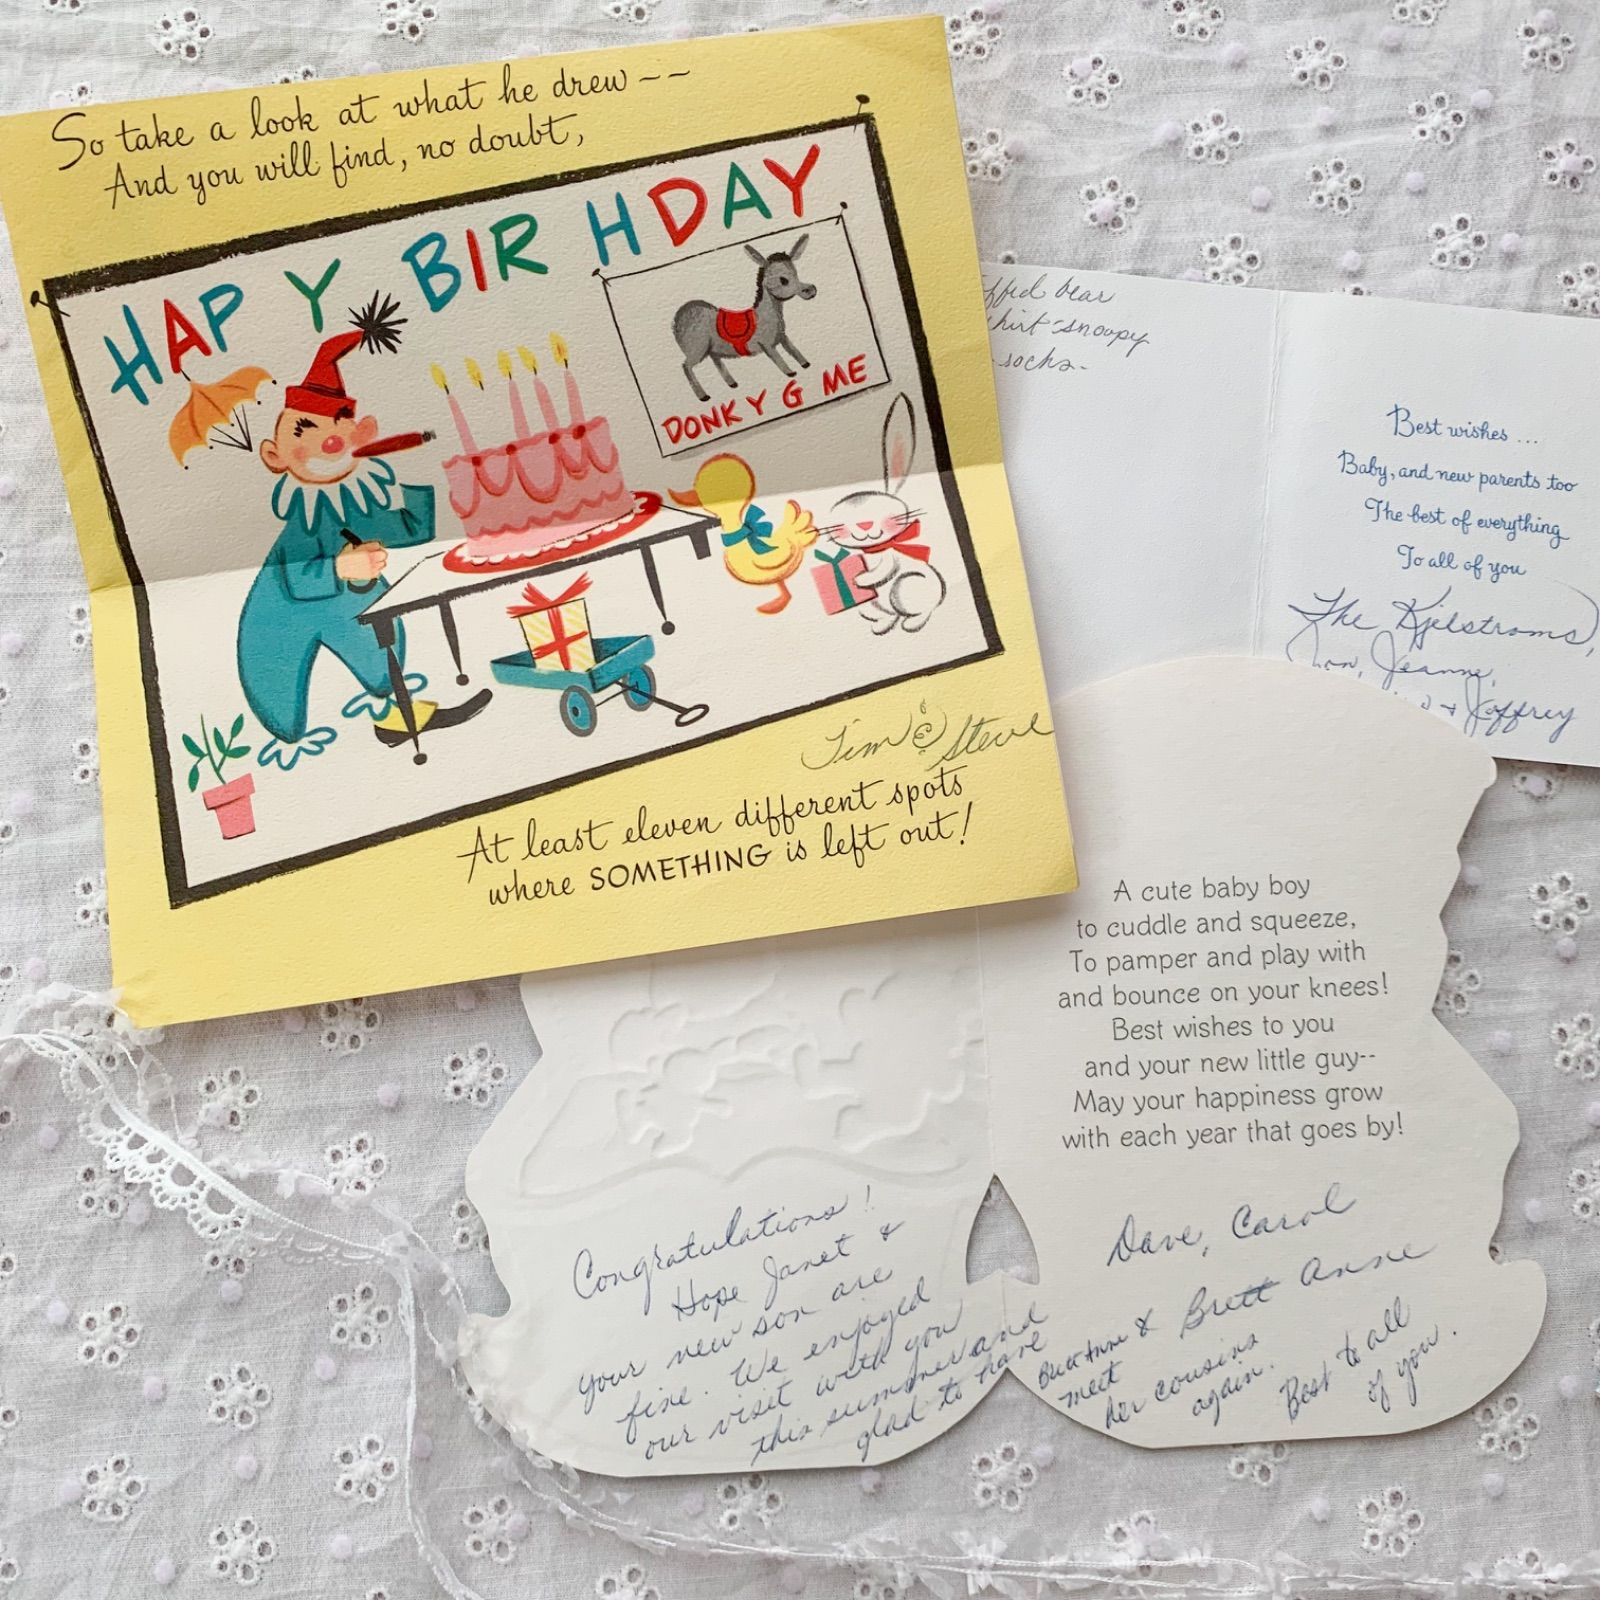 So take a look at what he drew --
And you will find, no doubt,
HAP Y BIR HDAY
DONK Y G ME
Tim & Steve
At least eleven different spots
where SOMETHING is left out!
bear
snoopy
socks-
Best wishes ...
Baby, and new parents too
The best of everything
To all of you
The Kjelstroms,
Jeanne,
& Jeffrey
A cute baby boy
to cuddle and squeeze,
To pamper and play with
and bounce on your knees!
Best wishes to you
and your new little guy--
May your happiness grow
with each year that goes by!
Congratulations!
Hope Janet &
your new son are
fine. We enjoyed
our visit with you
this summer and
glad to have
Dave, Carol
& Brett Anne
Brett Anne
meet
her cousins
again.
Best to all
of you.